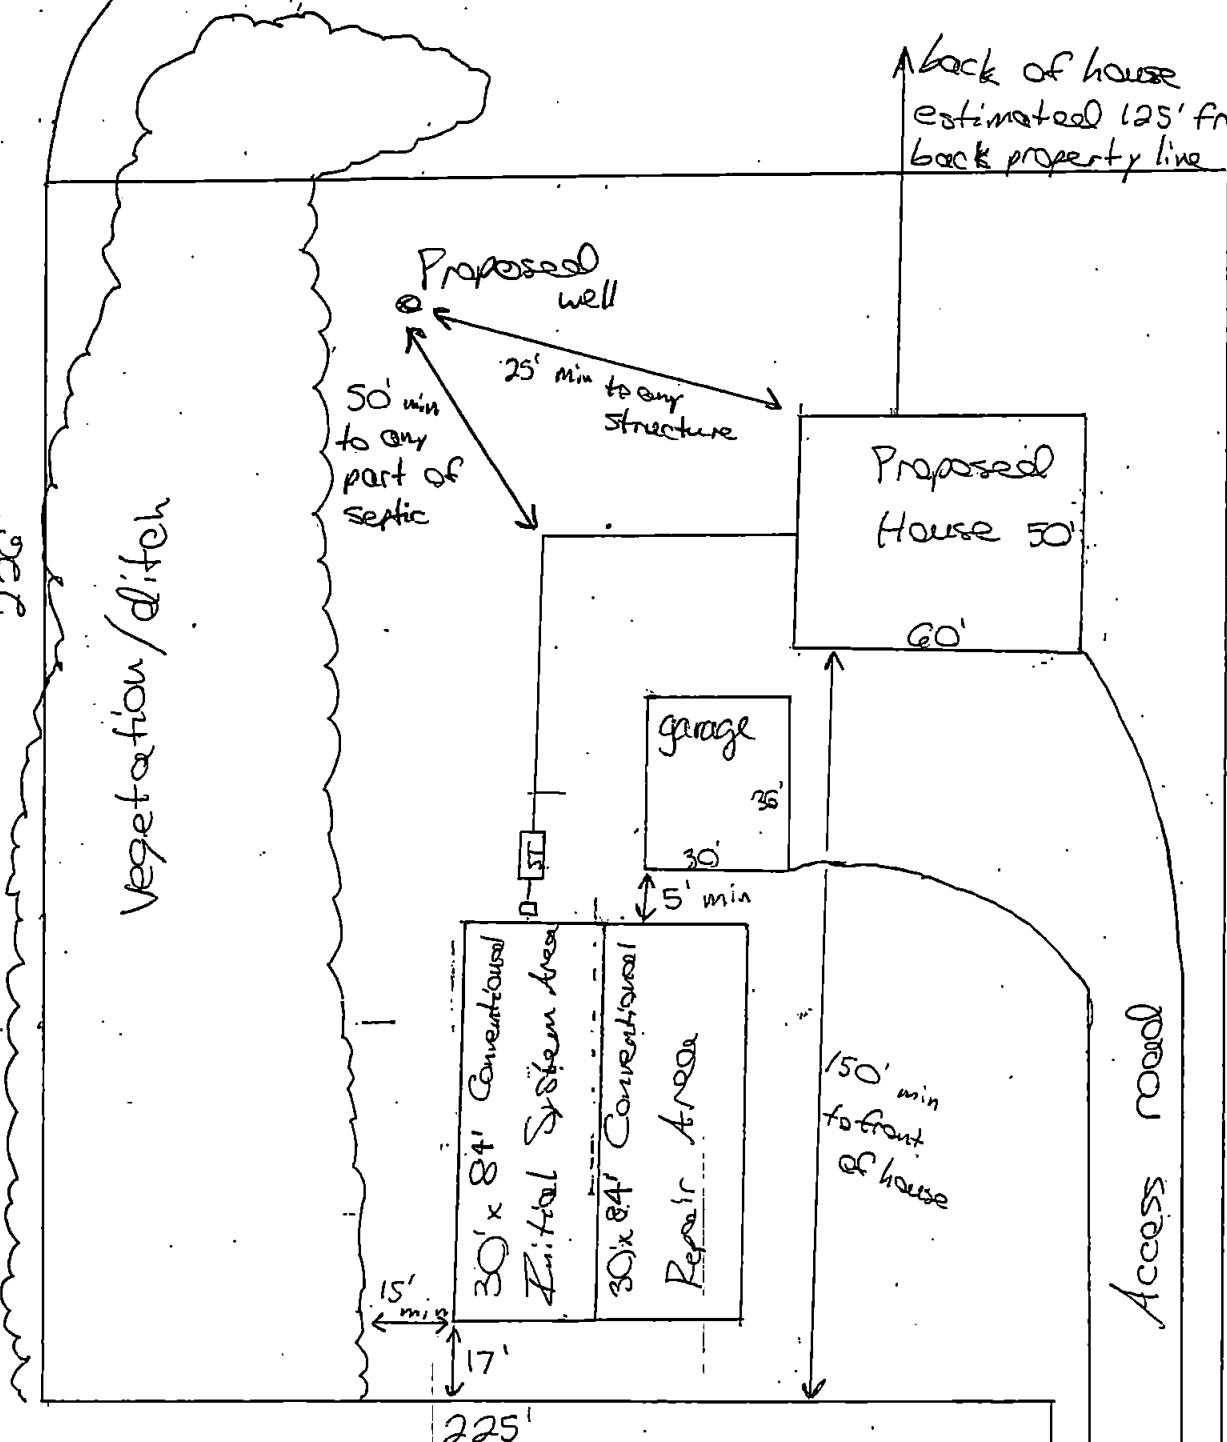 back of house
estimated 125' fr
back property line
Proposed
well
25' min to any
structure
50' min
to any
part of
septic
Proposed
House 50'
60'
vegetation/ditch
garage
30'
ST
5' min
30' x 84' Conventional
Initial System Area
30' x 84' Conventional
Repair Area
150' min
to front
of house
Access road
15'
min
17'
225'